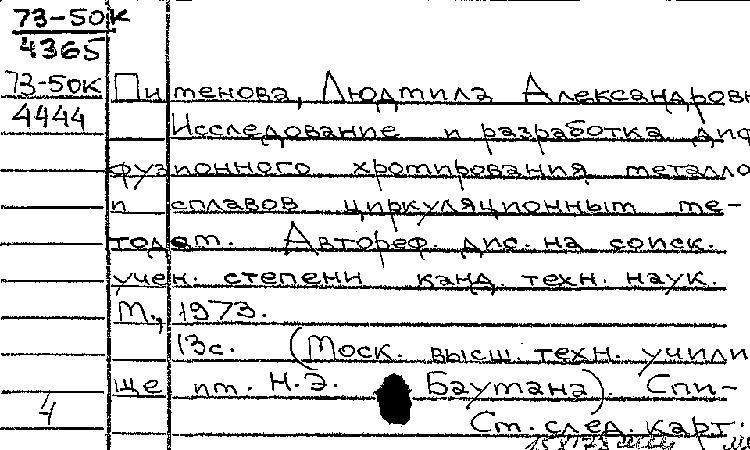 73-50к
4365
73-50к
4444
Пименова, Людмила Александровн
Исследование и разработка диф
фузионного хромирования металло
и сплавов циркуляционным ме-
тодом. Автореф. дис. на соиск.
учен. степени канд. техн. наук.
М., 1973.
13с. (Моск. высш. техн. учили
ще им. Н.Э. Баумана). Спи-
4
Ст. след. карт.